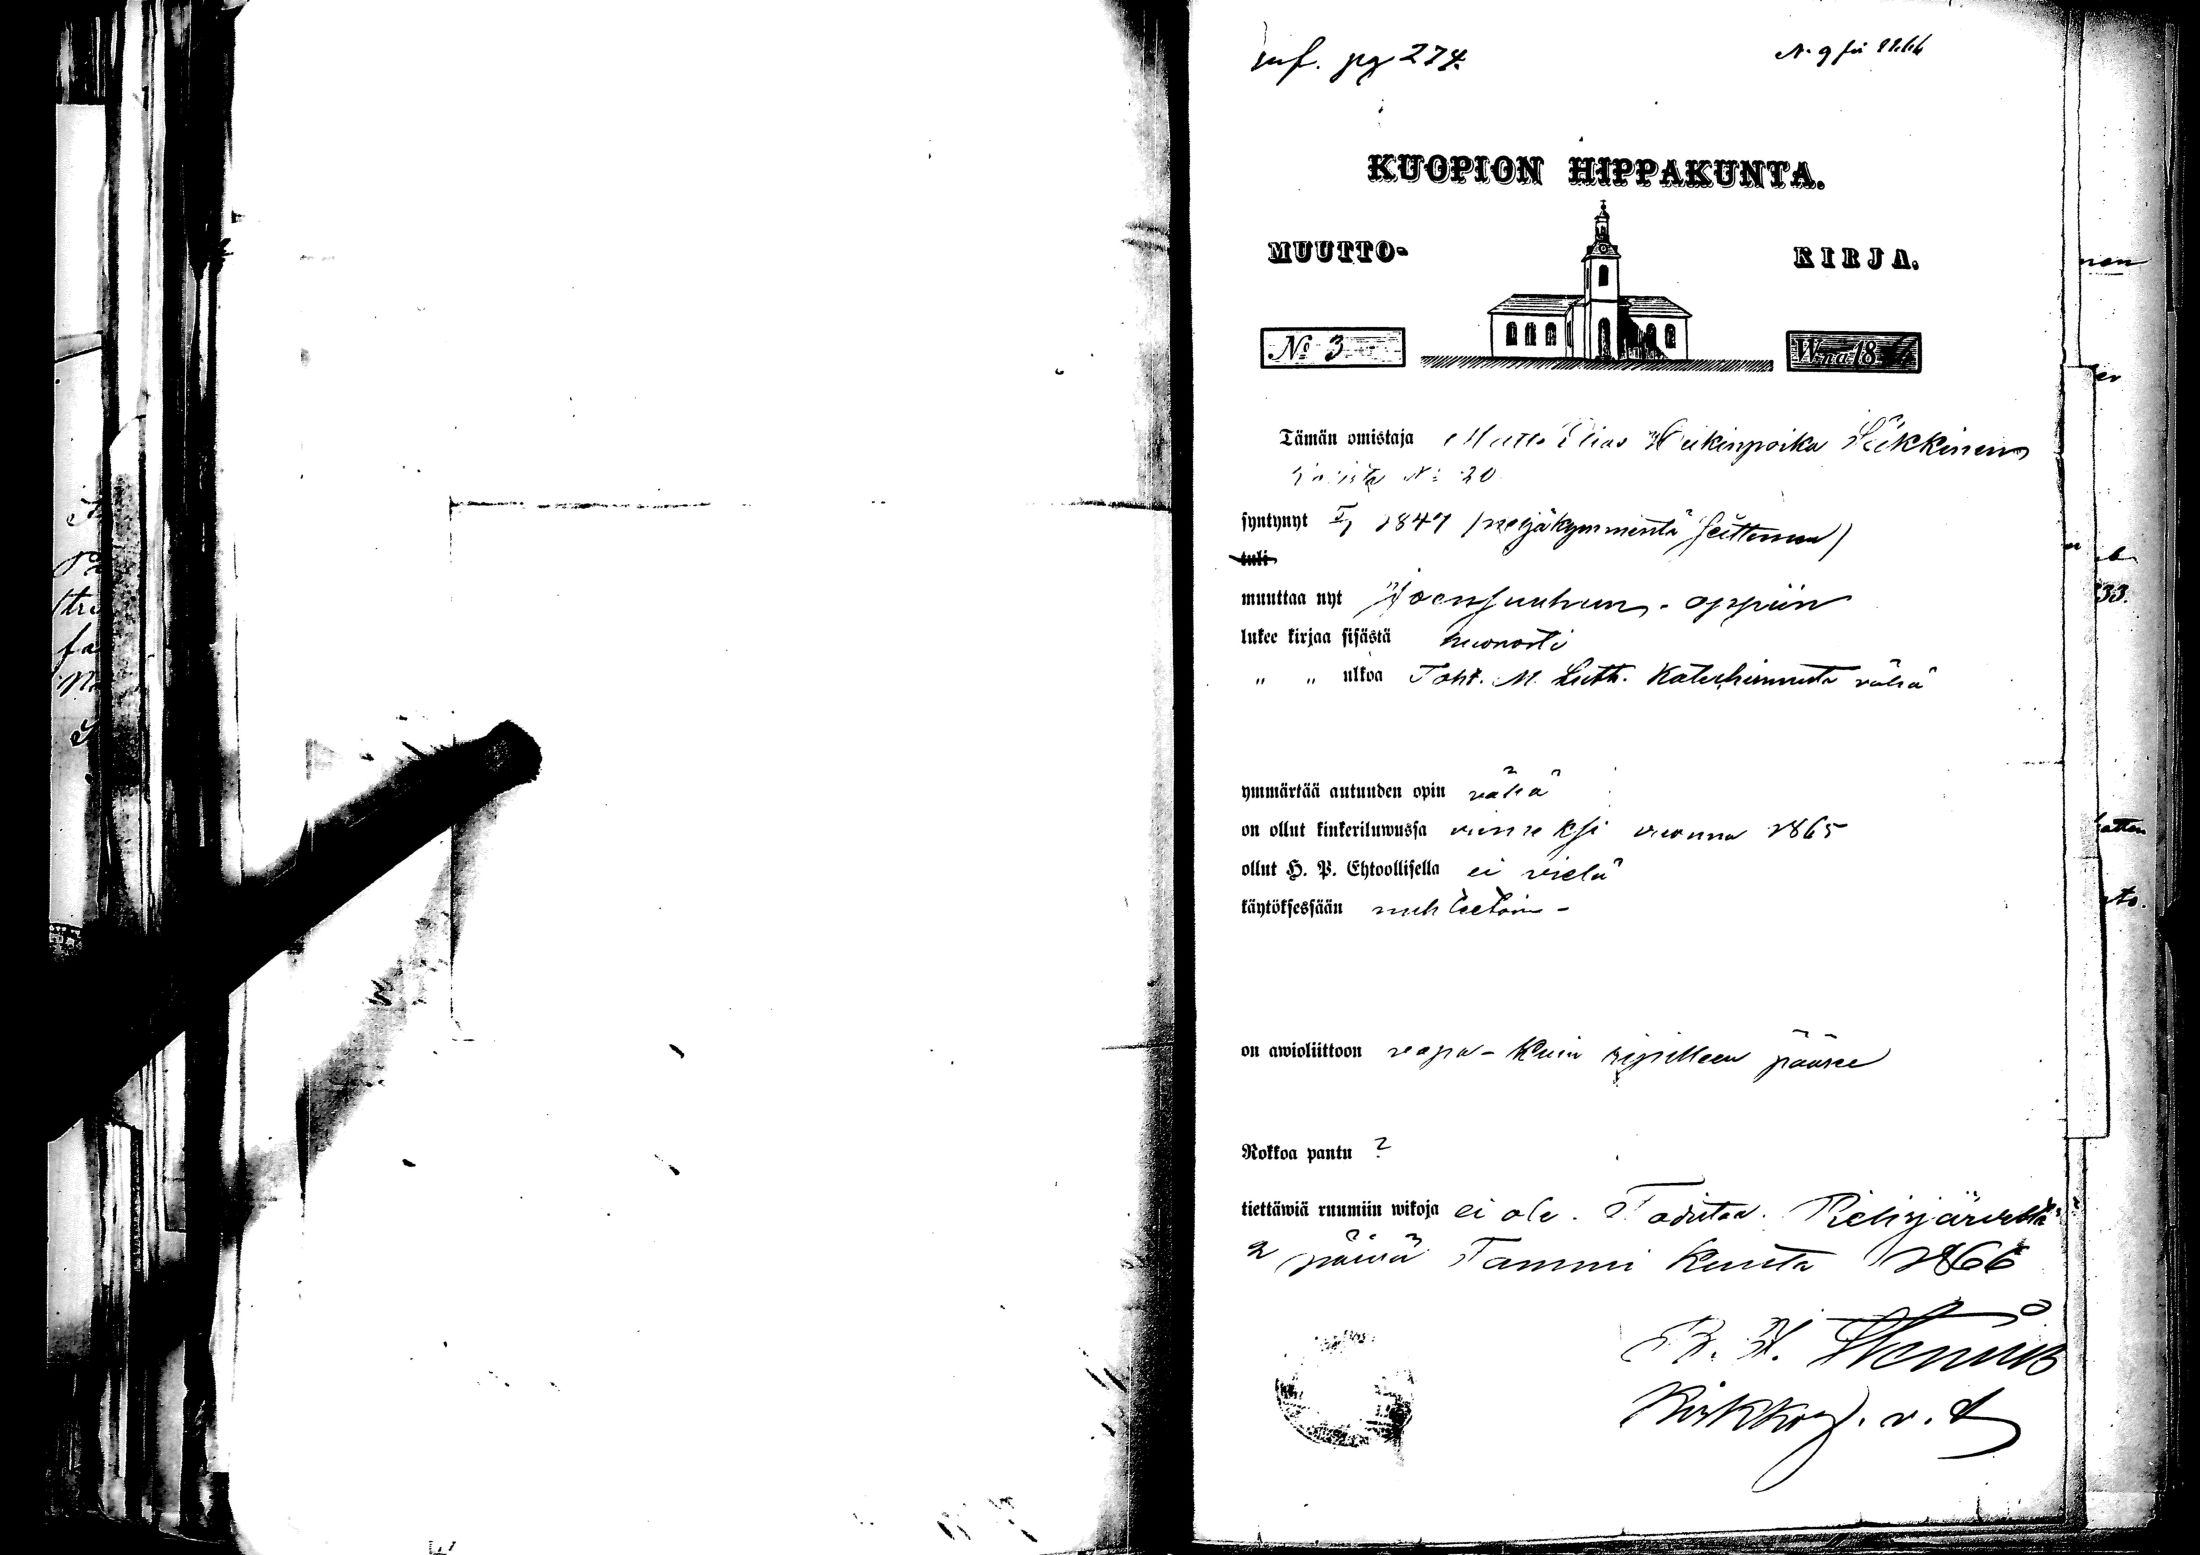 inf. pg 274.
KUOPION HIPPAKUNTA.
MUUTTO-
KIRJA.
No 3
W:na 18
Tämän omistaja Matts Elias Heikinpoika
No 20
syntynyt 1847 /neljäkymmentä seittemän/
tuli
muuttaa nyt Joensuuhun - oppiin
lukee kirjaa sisästä huonosti
„ „ ulkoa Toht. M. Luth. Katechismusta vähä
ymmärtää autuuden opin vähä
on ollut kinkeriluwussa viimeksi vuonna 1865
ollut H. P. Ehtoollisella ei vielä
käytöksessään nuhteetoin -
on awioliittoon vapa - kuin ripilleen pääsee
Rokkoa pantu ?
tiettäwiä ruumiin wikoja ei ole. Todistaa. Pielisjärveltä
2 päivä Tammi kuuta 1866